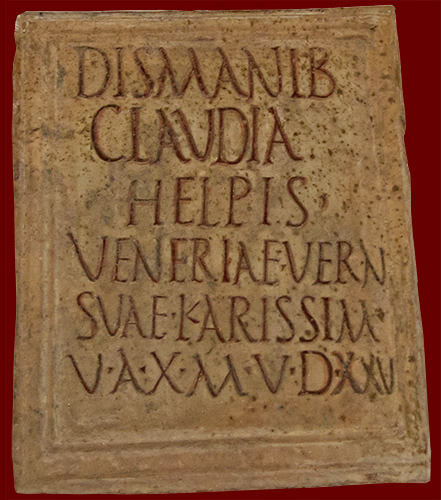 DISMANIB
CLAUDIA
HELPIS
VENERIAE·VERN
SVAE·KARISSIM
V·A·X·M·V·DXXV